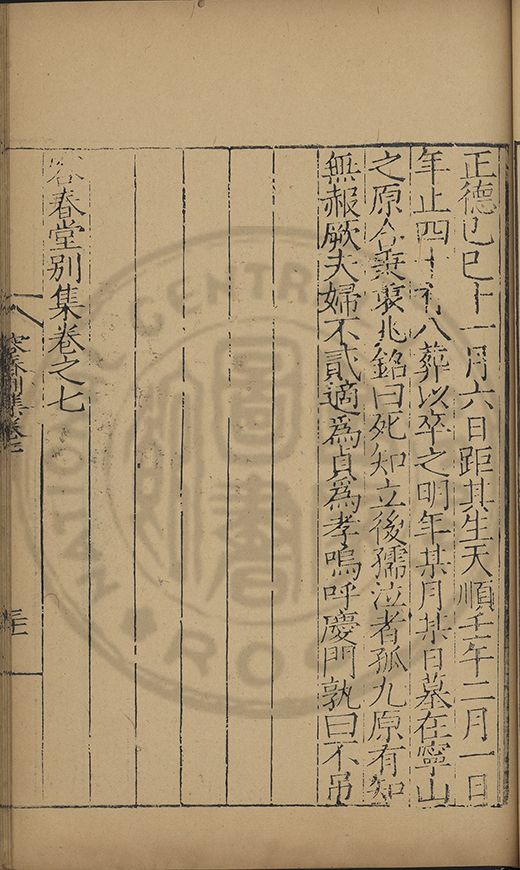 正德己巳十一月六日距其生天順壬午二月一日
年止四十有八葬以卒之明年某月某日墓在寧山
之原合葬兆銘曰死知立後孺泣者孤九原有知
無赧厥夫婦不貳適為貞為孝嗚呼慶門孰曰不吊
容春堂別集卷之七
容春別集卷七